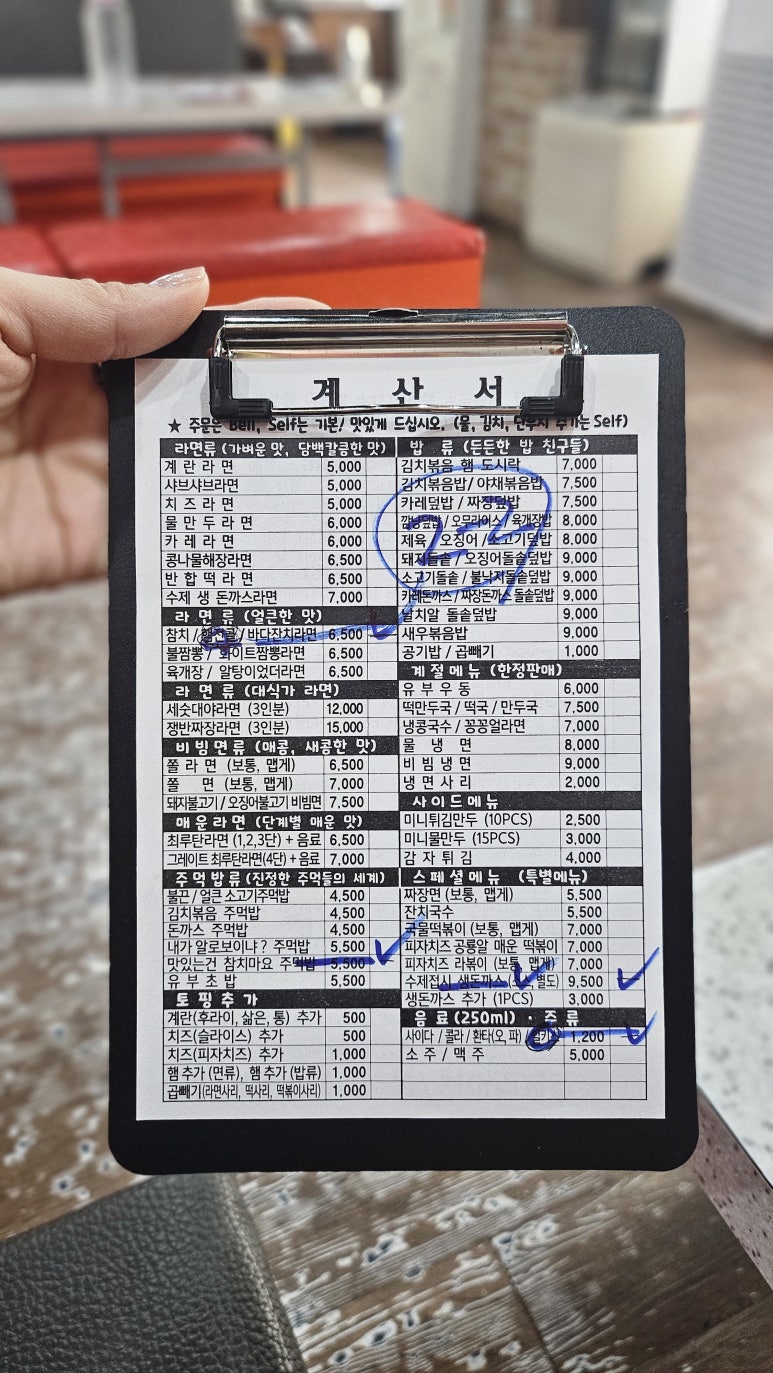 계 산 서
★ 주문은 Bell, Self는 기본! 맛있게 드십시오. (물, 김치, 단무지 추가는 Self)
라면류 (가벼운 맛, 담백칼큼한 맛)
계 란 라 면 5,000
샤브샤브라면 5,000
치 즈 라 면 5,000
물 만 두 라 면 6,000
카 레 라 면 6,000
콩나물해장라면 6,500
반 합 떡 라 면 6,500
수제 생 돈까스라면 7,000
라 면 류 (얼큰한 맛)
참치 / / 바다잔치라면 6,500
불짬뽕 / 화이트짬뽕라면 6,500
육개장 / 알탕이었더라면 6,500
라 면 류 (대식가 라면)
세숫대야라면 (3인분) 12,000
쟁반짜장라면 (3인분) 15,000
비 빔 면 류 (매콤, 새콤한 맛)
쫄 라 면 (보통, 맵게) 6,500
쫄 면 (보통, 맵게) 7,000
돼지불고기 / 오징어불고기 비빔면 7,500
매 운 라 면 (단계별 매운 맛)
최루탄라면 (1,2,3단) + 음료 6,500
그레이트 최루탄라면(4단) + 음료 7,000
주 먹 밥 류 (진정한 주먹들의 세계)
불끈 / 얼큰 소고기주먹밥 4,500
김치볶음 주먹밥 4,500
돈까스 주먹밥 4,500
내가 알로보이냐? 주먹밥 5,500
맛있는건 참치마요 주먹밥 5,500
유 부 초 밥 5,500
토 핑 추 가
계란(후라이, 삶은, 통) 추가 500
치즈(슬라이스) 추가 500
치즈(피자치즈) 추가 1,000
햄 추가 (면류), 햄 추가 (밥류) 1,000
곱빼기(라면사리, 떡사리, 떡볶이사리) 1,000
밥 류 (든든한 밥 친구들)
김치볶음 햄 도시락 7,000
김치볶음밥/ 야채볶음밥 7,500
카레덮밥 / 짜장덮밥 7,500
덮밥 / 오무라이스 / 육개장밥 8,000
제육 / 오징어 / 소고기덮밥 8,000
돼지돌솥 / 오징어돌솥덮밥 9,000
소고기돌솥 / 불낙지돌솥덮밥 9,000
카레돈까스 / 짜장돈까스 돌솥덮밥 9,000
날치알 돌솥덮밥 9,000
새우볶음밥 9,000
공기밥 / 곱빼기 1,000
2-2
계 절 메 뉴 (한정판매)
유 부 우 동 6,000
떡만두국 / 떡국 / 만두국 7,500
냉콩국수 / 꽁꽁얼라면 7,000
물 냉 면 8,000
비 빔 냉 면 9,000
냉 면 사 리 2,000
사 이 드 메 뉴
미니튀김만두 (10PCS) 2,500
미니물만두 (15PCS) 3,000
감 자 튀 김 4,000
스 페 셜 메 뉴 (특별메뉴)
짜장면 (보통, 맵게) 5,500
잔치국수 5,500
국물떡볶이 (보통, 맵게) 7,000
피자치즈 공룡알 매운 떡볶이 7,000
피자치즈 라볶이 (보통, 맵게) 7,000
수제접시 생돈까스 별도) 9,500
생돈까스 추가 (1PCS) 3,000
음 료 (250ml) · 주 류
사이다 / 콜라 / 환타(오, 파) / 1,200
소 주 / 맥 주 5,000